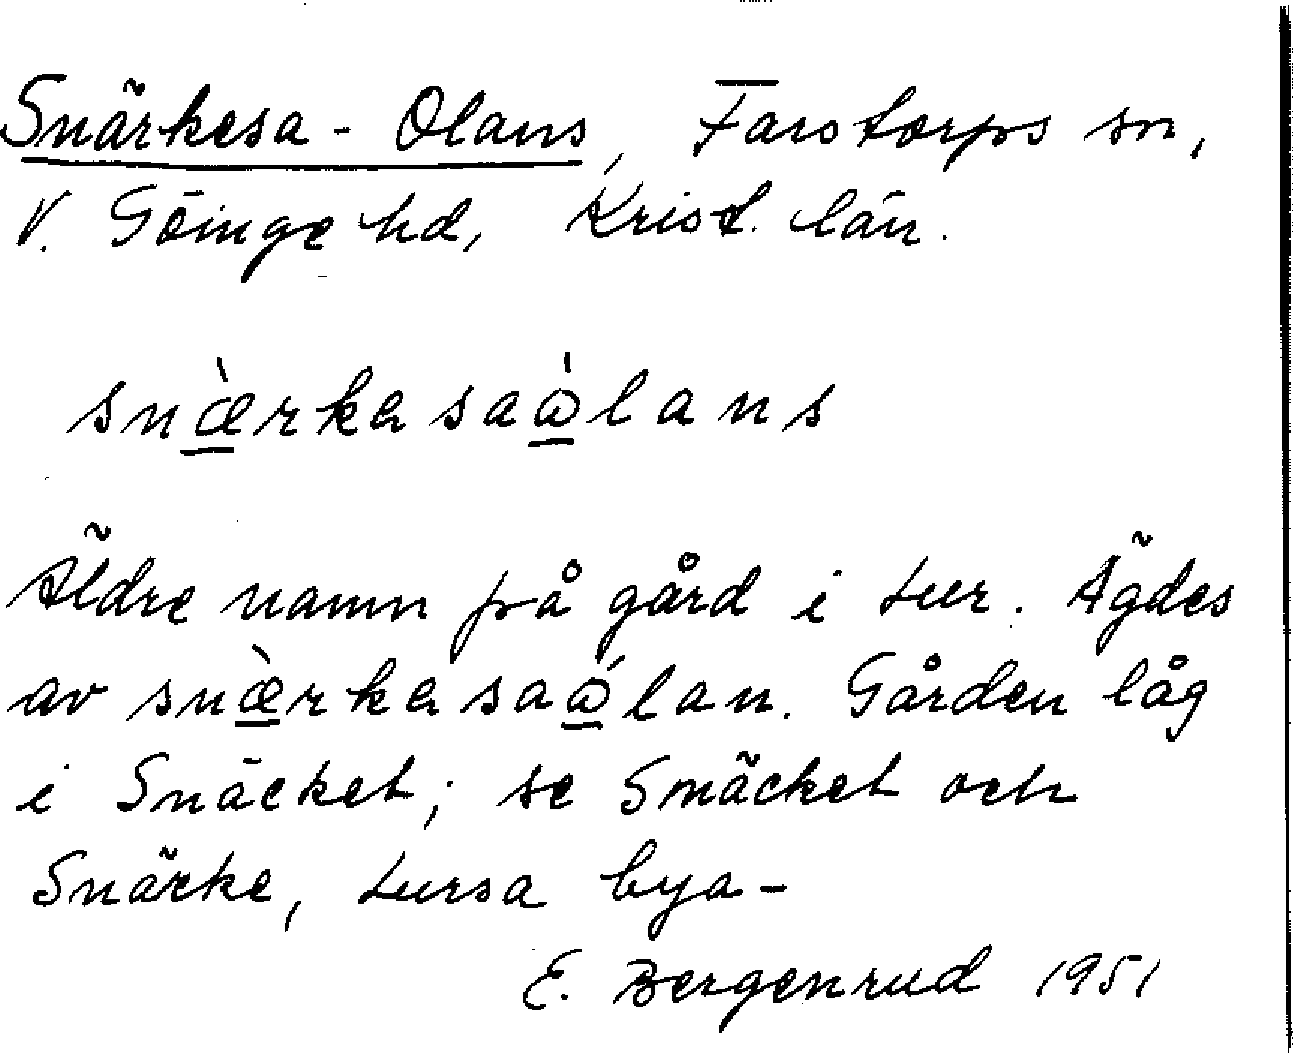 Snärkesa-Olans, Farstorps sn,
V. Göinge hd, Krist. län.
snæ̀rkesaàlans
Äldre namn på gård i Lur. Ägdes
av snæ̀rkesaálan. Gården låg
i Snäcket; se Smäcket och
Snärke, Lursa bya-
E. Bergenrud 1951